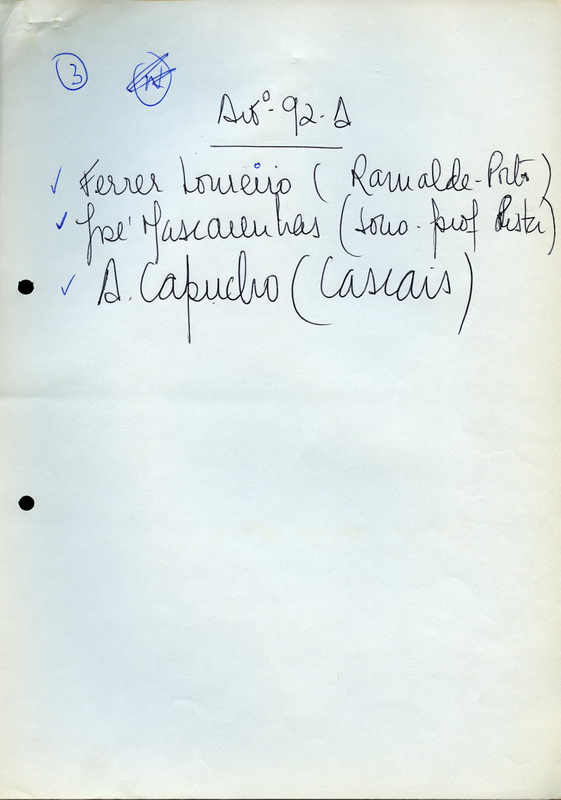 3
Artº-92-A
Ferrer Loureiro (Ramalde-Porto)
José Mascarenhas (Soño-prof
A. Capucho (Cascais)